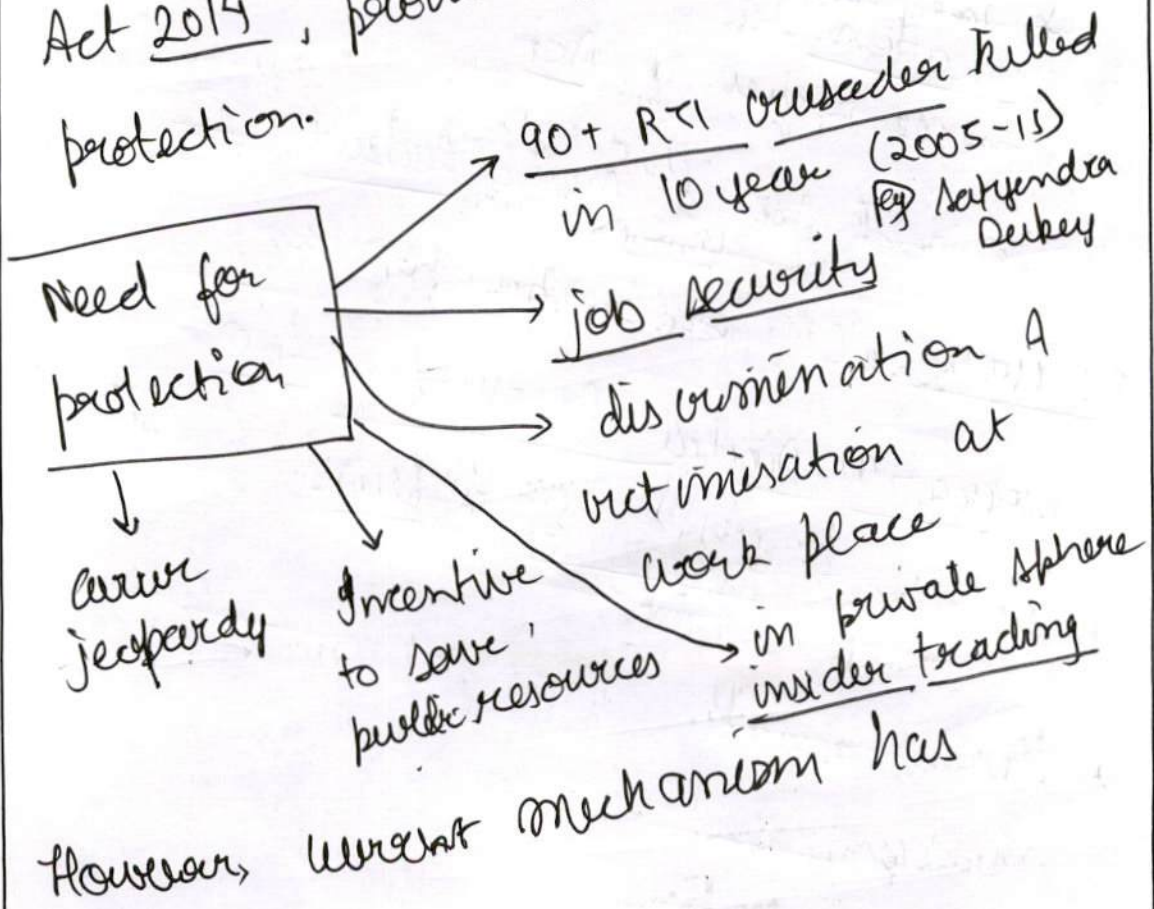 Act 2014,
protection.
Need for
protection
90+ RTI crusader killed
in 10 year (2005-15)
eg Satyendra
Dubey
job security
discrimination &
victimisation at
work place
in private sphere
insider trading
Incentive
to save
public resources
career
jeopardy
However, current mechanism has